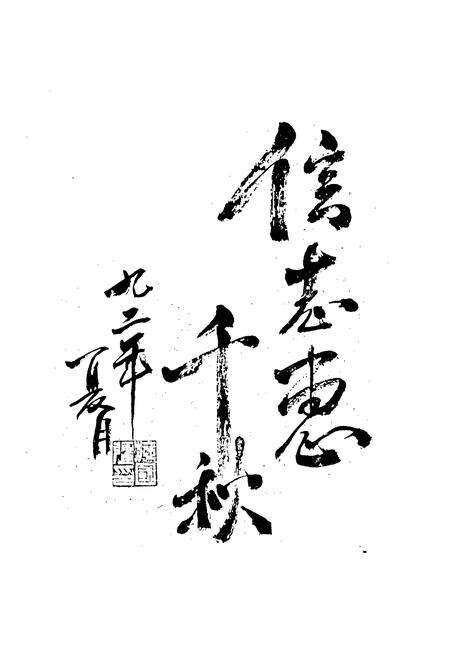 信志惠
千秋
九二年
夏月